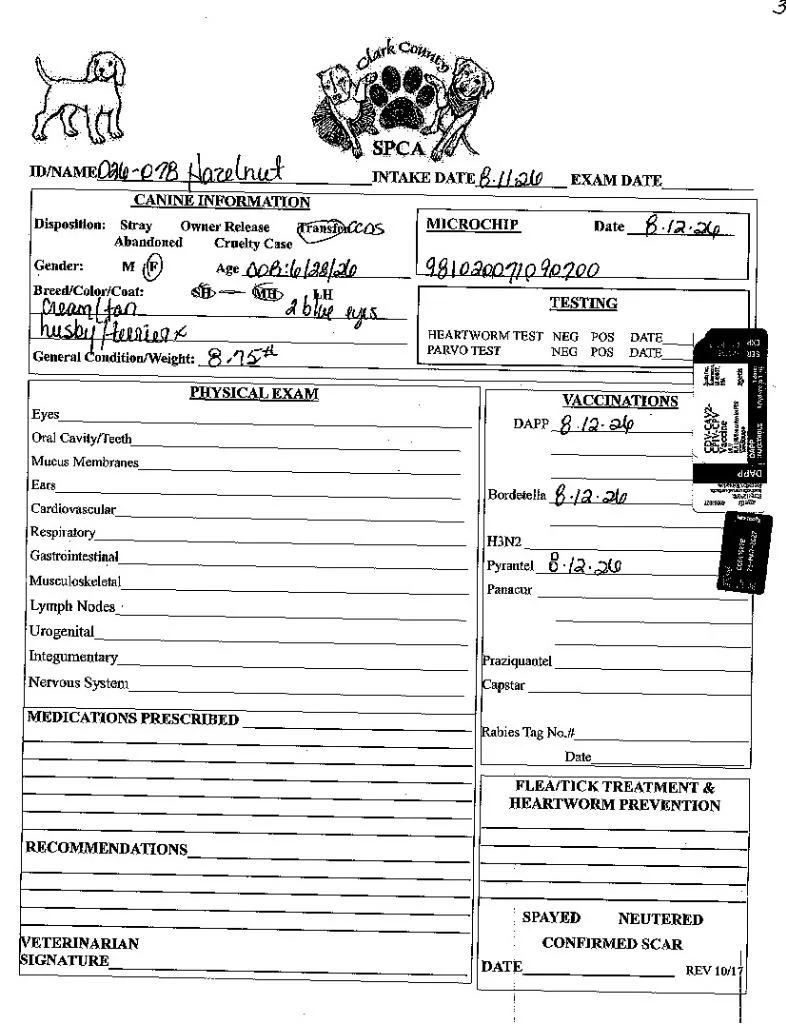 3
Clark County
SPCA
ID/NAME 026-078 Hazelnut INTAKE DATE 8.11.26 EXAM DATE
CANINE INFORMATION
Disposition: Stray Owner Release Transfer CCDS
Abandoned Cruelty Case
Gender: M F Age DOB: 6/28/26
Breed/Color/Coat: SH MH LH
cream/tan 2 blue eyes
husky/terrier x
General Condition/Weight: 8.75#
MICROCHIP Date 8.12.26
981020071090700
TESTING
HEARTWORM TEST NEG POS DATE
PARVO TEST NEG POS DATE
PHYSICAL EXAM
Eyes
Oral Cavity/Teeth
Mucus Membranes
Ears
Cardiovascular
Respiratory
Gastrointestinal
Musculoskeletal
Lymph Nodes
Urogenital
Integumentary
Nervous System
MEDICATIONS PRESCRIBED
RECOMMENDATIONS
VETERINARIAN
SIGNATURE
VACCINATIONS
DAPP 8.12.26
Bordetella 8.12.26
H3N2
Pyrantel 8.12.26
Panacur
Praziquantel
Capstar
Rabies Tag No.#
Date
CDV-CAV2-
CPIV-CPV
Vaccine
DAPP
FLEA/TICK TREATMENT &
HEARTWORM PREVENTION
SPAYED NEUTERED
CONFIRMED SCAR
DATE REV 10/17